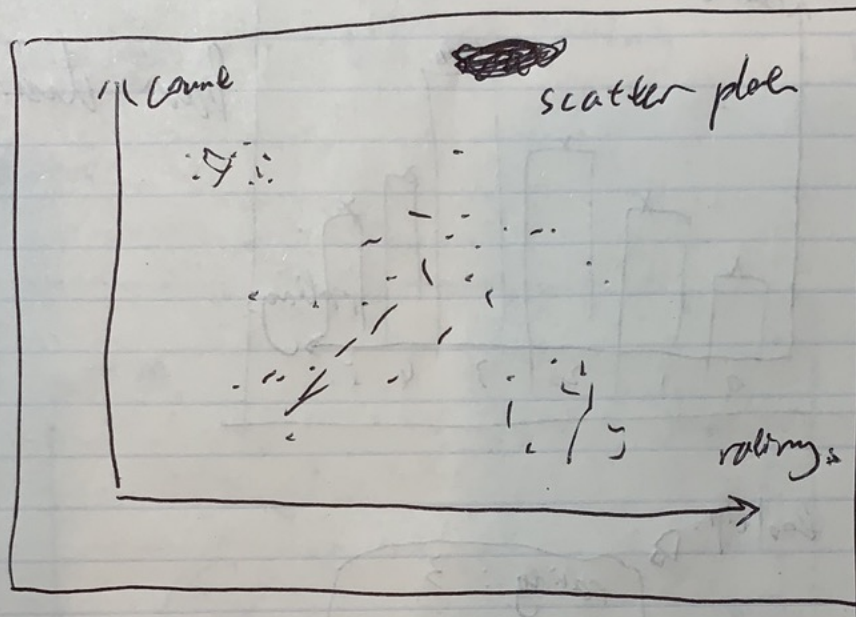 count
scatter plot
ratings